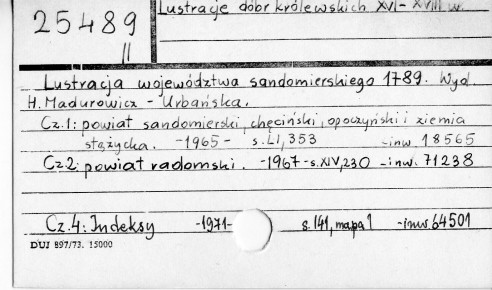 Lustracje dóbr królewskich XVI - XVIII w.
25489
II
Lustracja województwa sandomierskiego 1789. Wyd.
H. Madurowicz - Urbańska.
Cz.1: powiat sandomierski, chęciński, opoczyński i ziemia
stężycka. -1965- s. LI, 353 -inw. 18565
Cz.2: powiat radomski. -1967- s. XIV, 230 -inw. 71238
Cz.4: Indeksy -1971- s. 141, mapa 1 -inw. 64501
DUJ 897/73. 15000